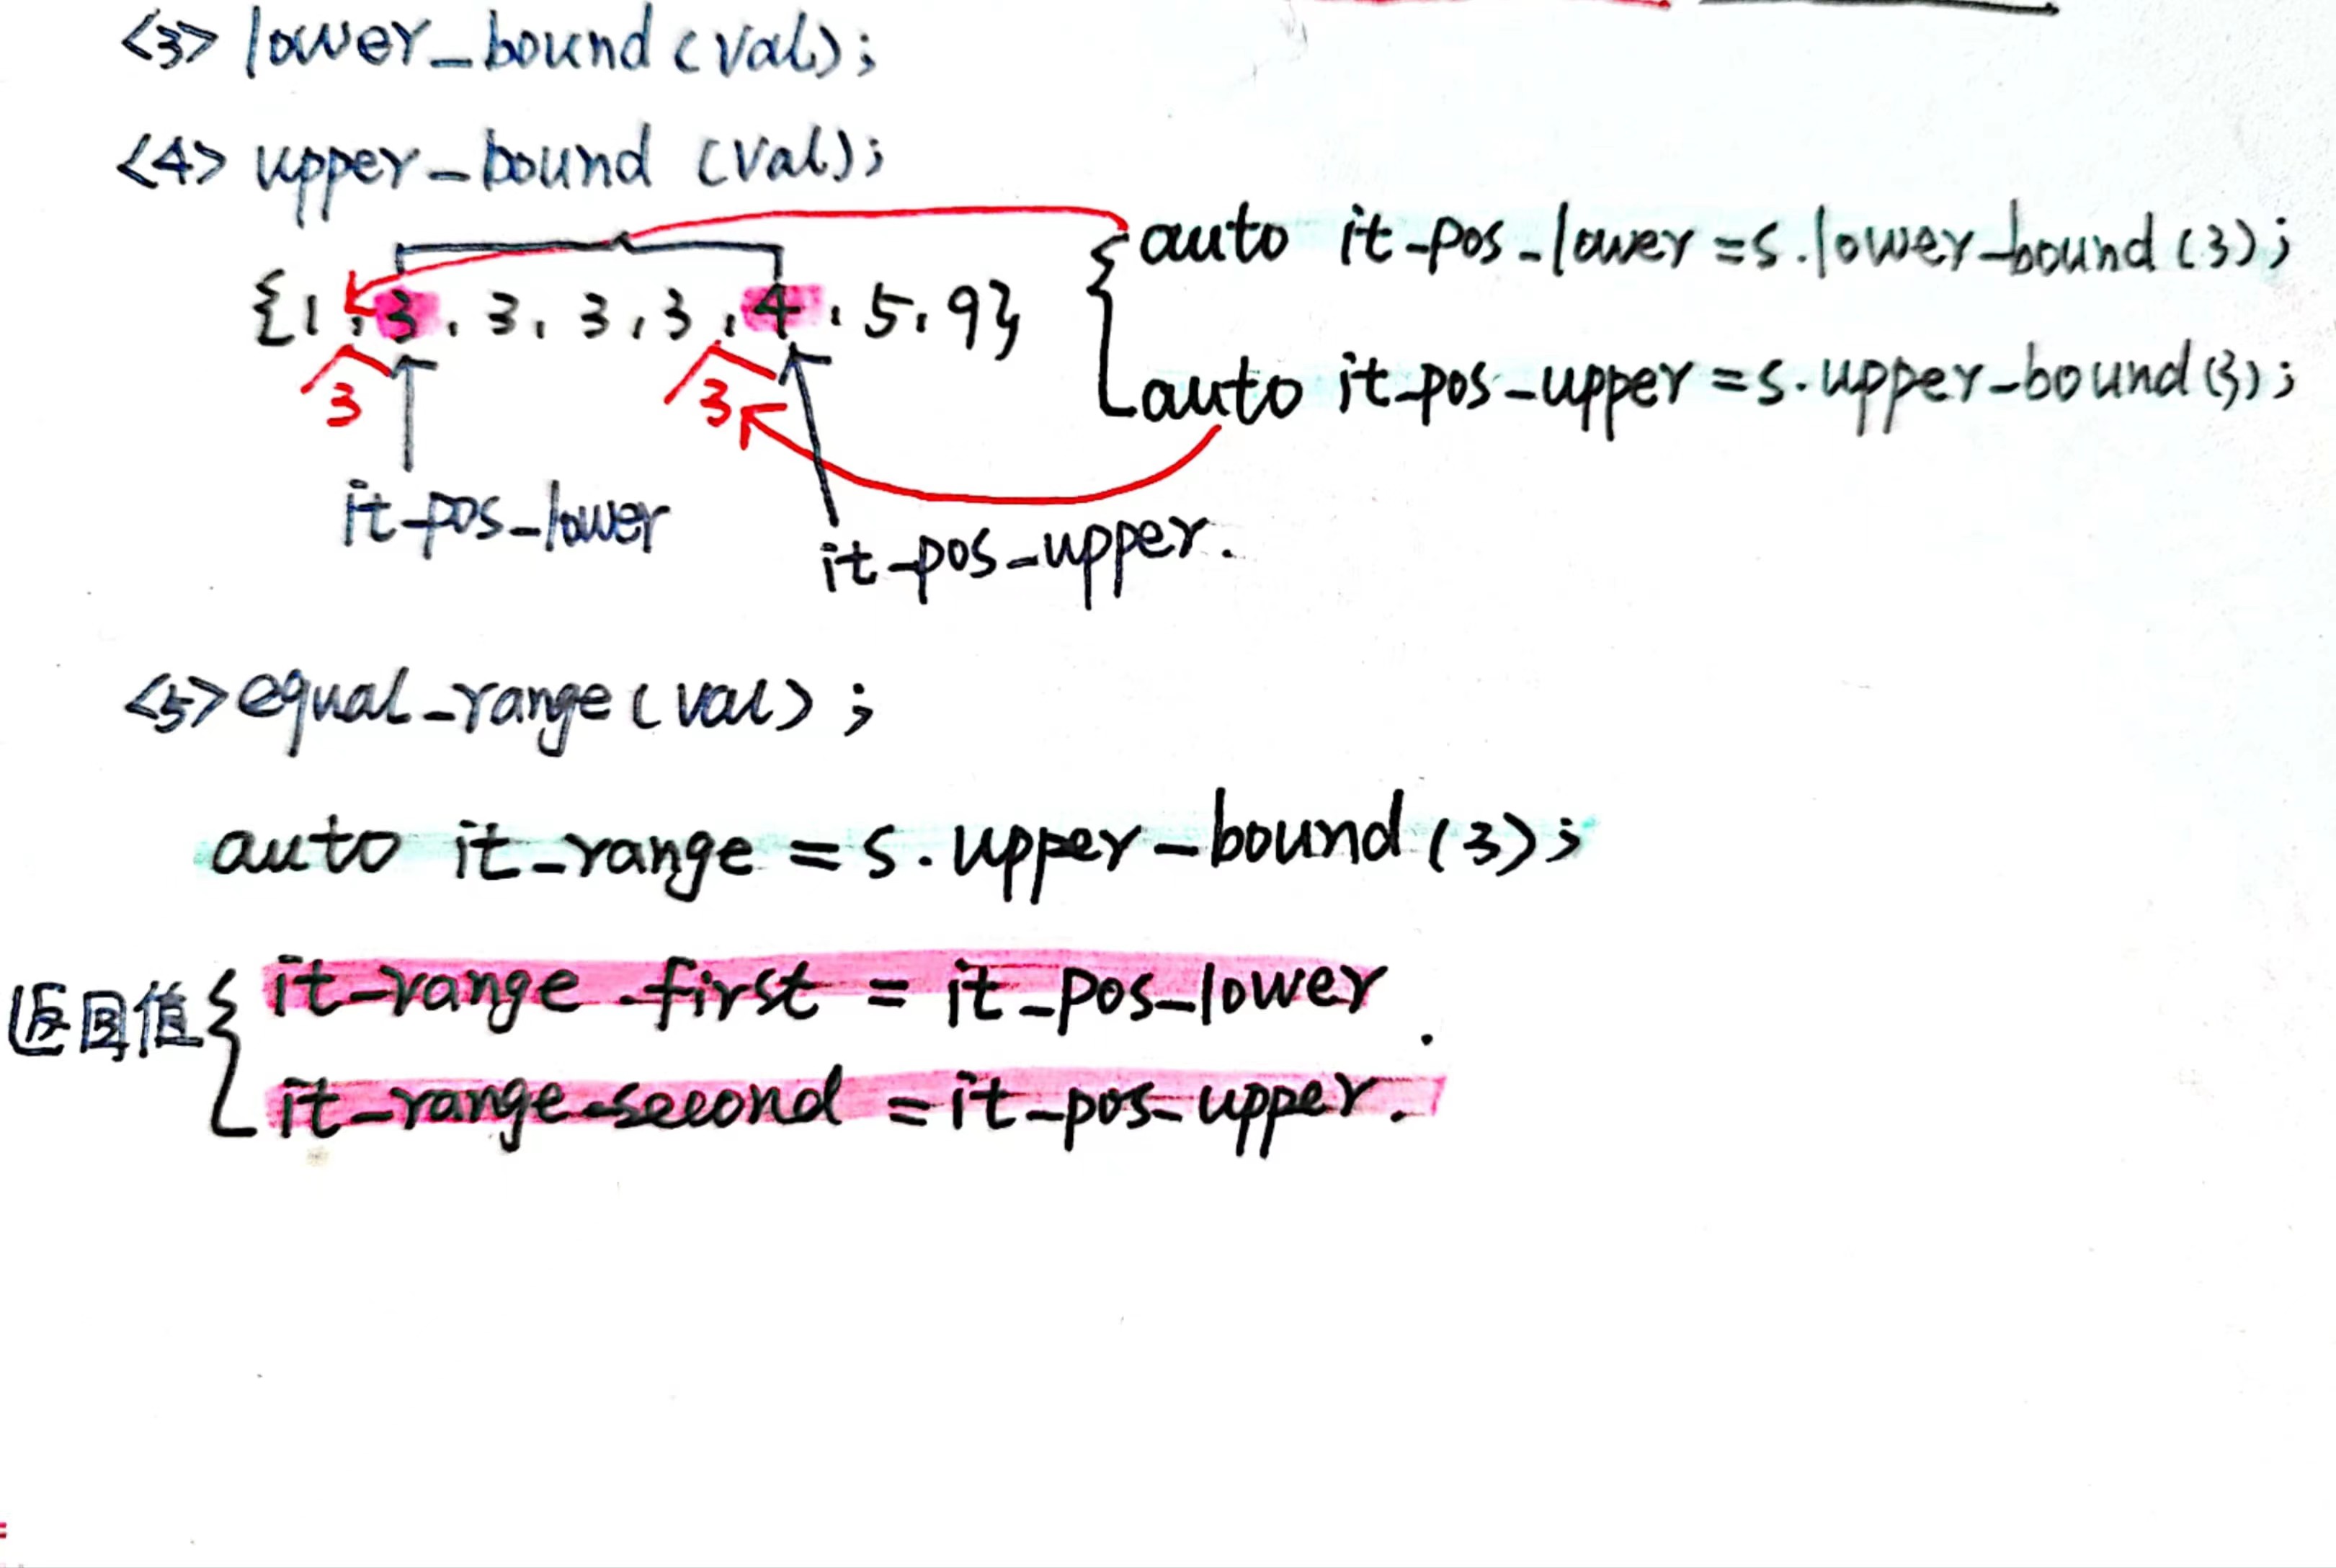 <3> lower_bound(val);
<4> upper_bound (val);
{1,3,3,3,3,4,5,9}
3 3
it_pos_lower
it_pos_upper.
{ auto it_pos_lower=s.lower_bound(3);
auto it_pos_upper=s.upper_bound(3);
<5> equal_range(val);
auto it_range=s.upper_bound(3);
返回值 { it_range.first = it_pos_lower.
it_range.second = it_pos_upper.